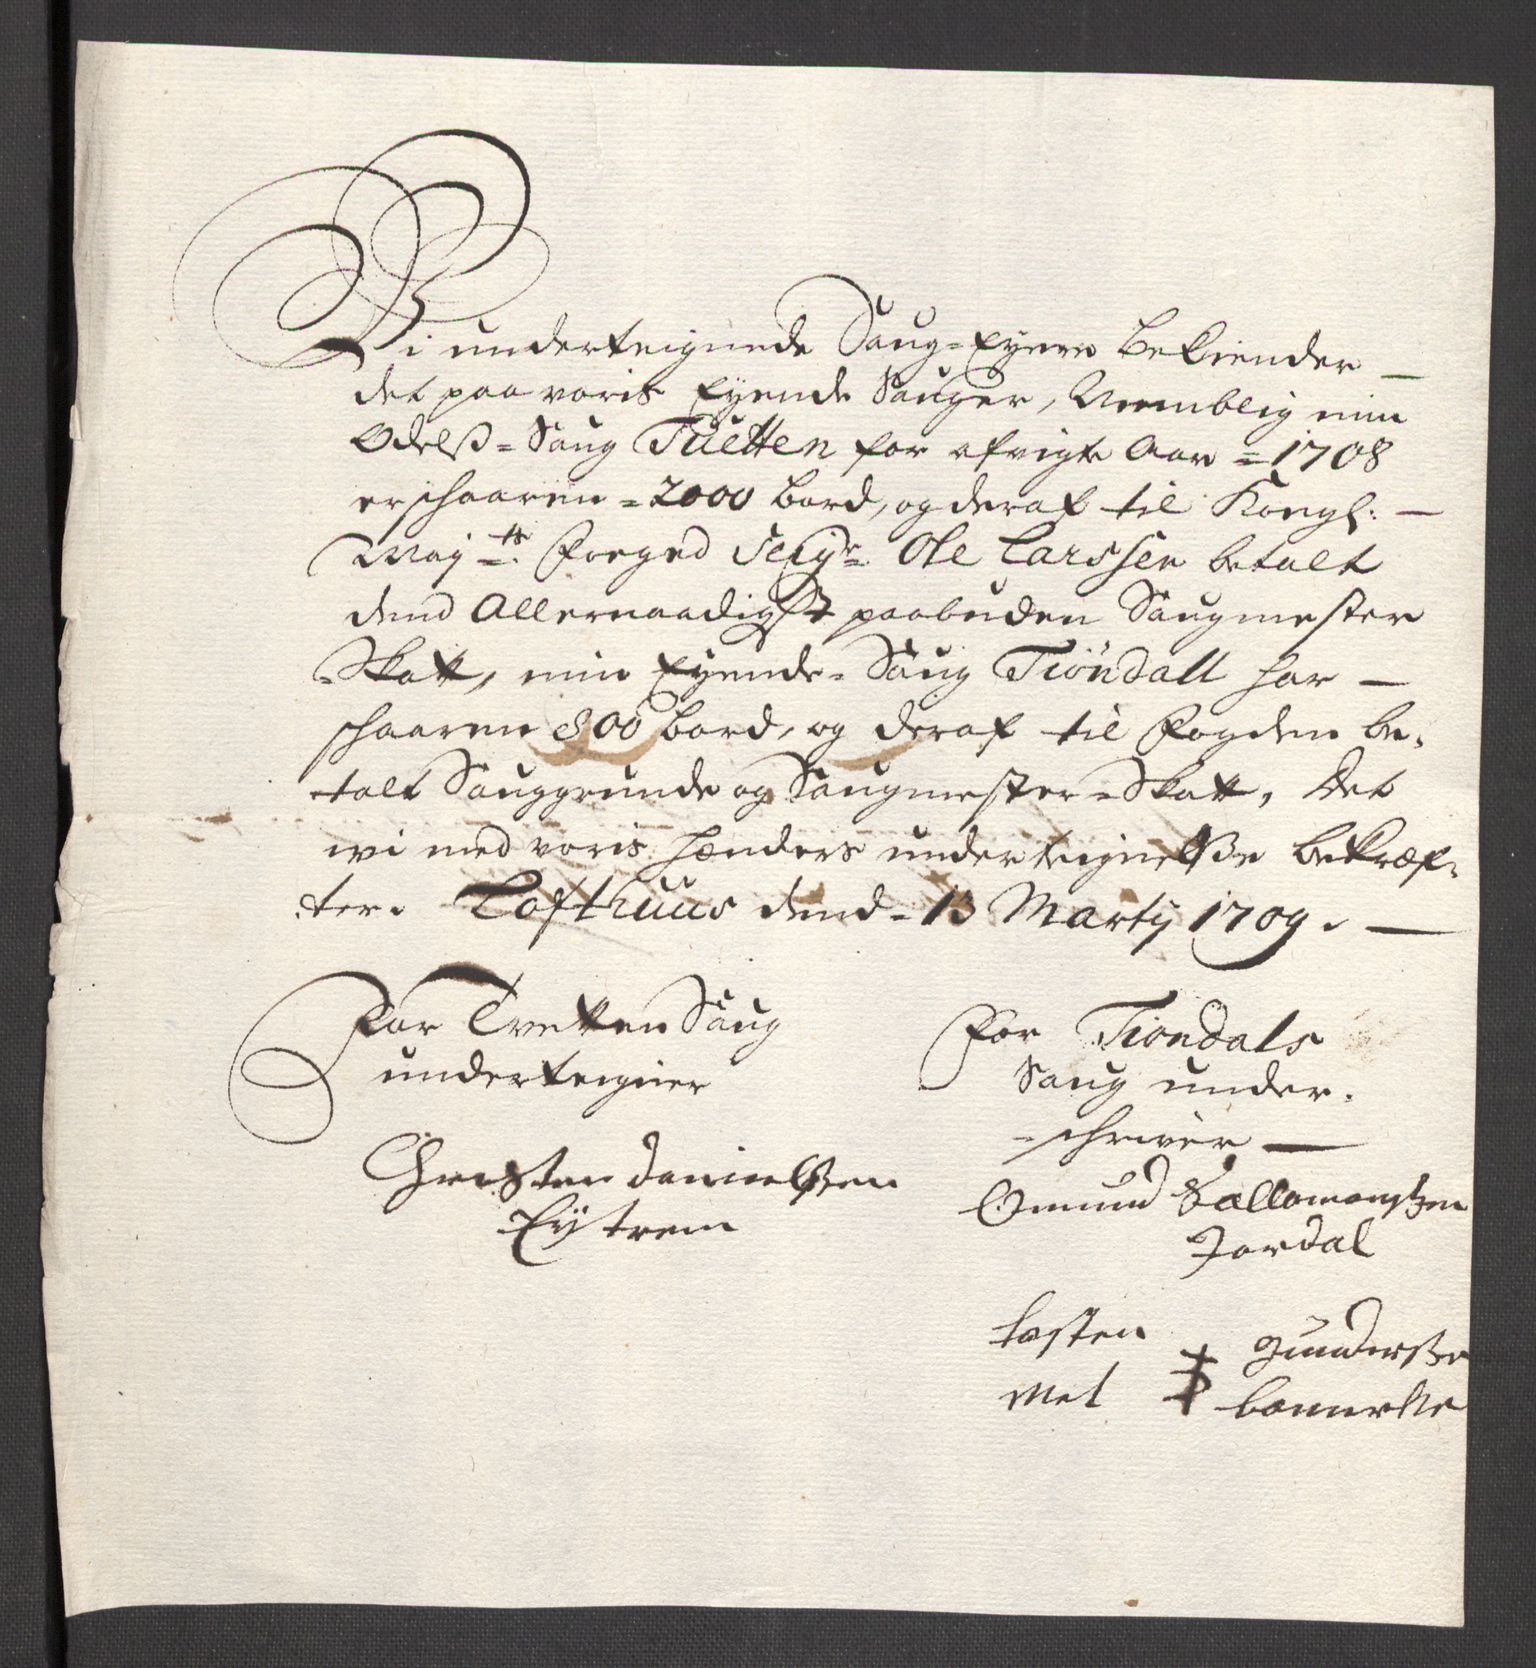 Vi underteignede Saug-Eyere bekiender
det paa voris Eyende Sauger, Nemblig min
Odelß-Saug Tuetten for afvigte Aar 1708
er schaaren 2000 bord, og deraf til Kongl:
Mayts: Foeged Seigr. Ole Larssen betalt
dend Allernaadigst paabuden Saugmester
Skatt, min Eyende-Saug Tiöndall har
schaaren 800 bord, og deraf til fogden be,
talt Sauggrunde og Saugmester-Skatt, Det
wi med voris hænders underteignelße bekræf,
ter. Lofthuus dend 13 Martij 1709.
For Tvetten Saug
underteigner
Christen danielßen
Eÿtrem
For Tiondals
Saug under,
schriver
Omund Sallomonsen
Jordal
tosten gunderße
met bomerke